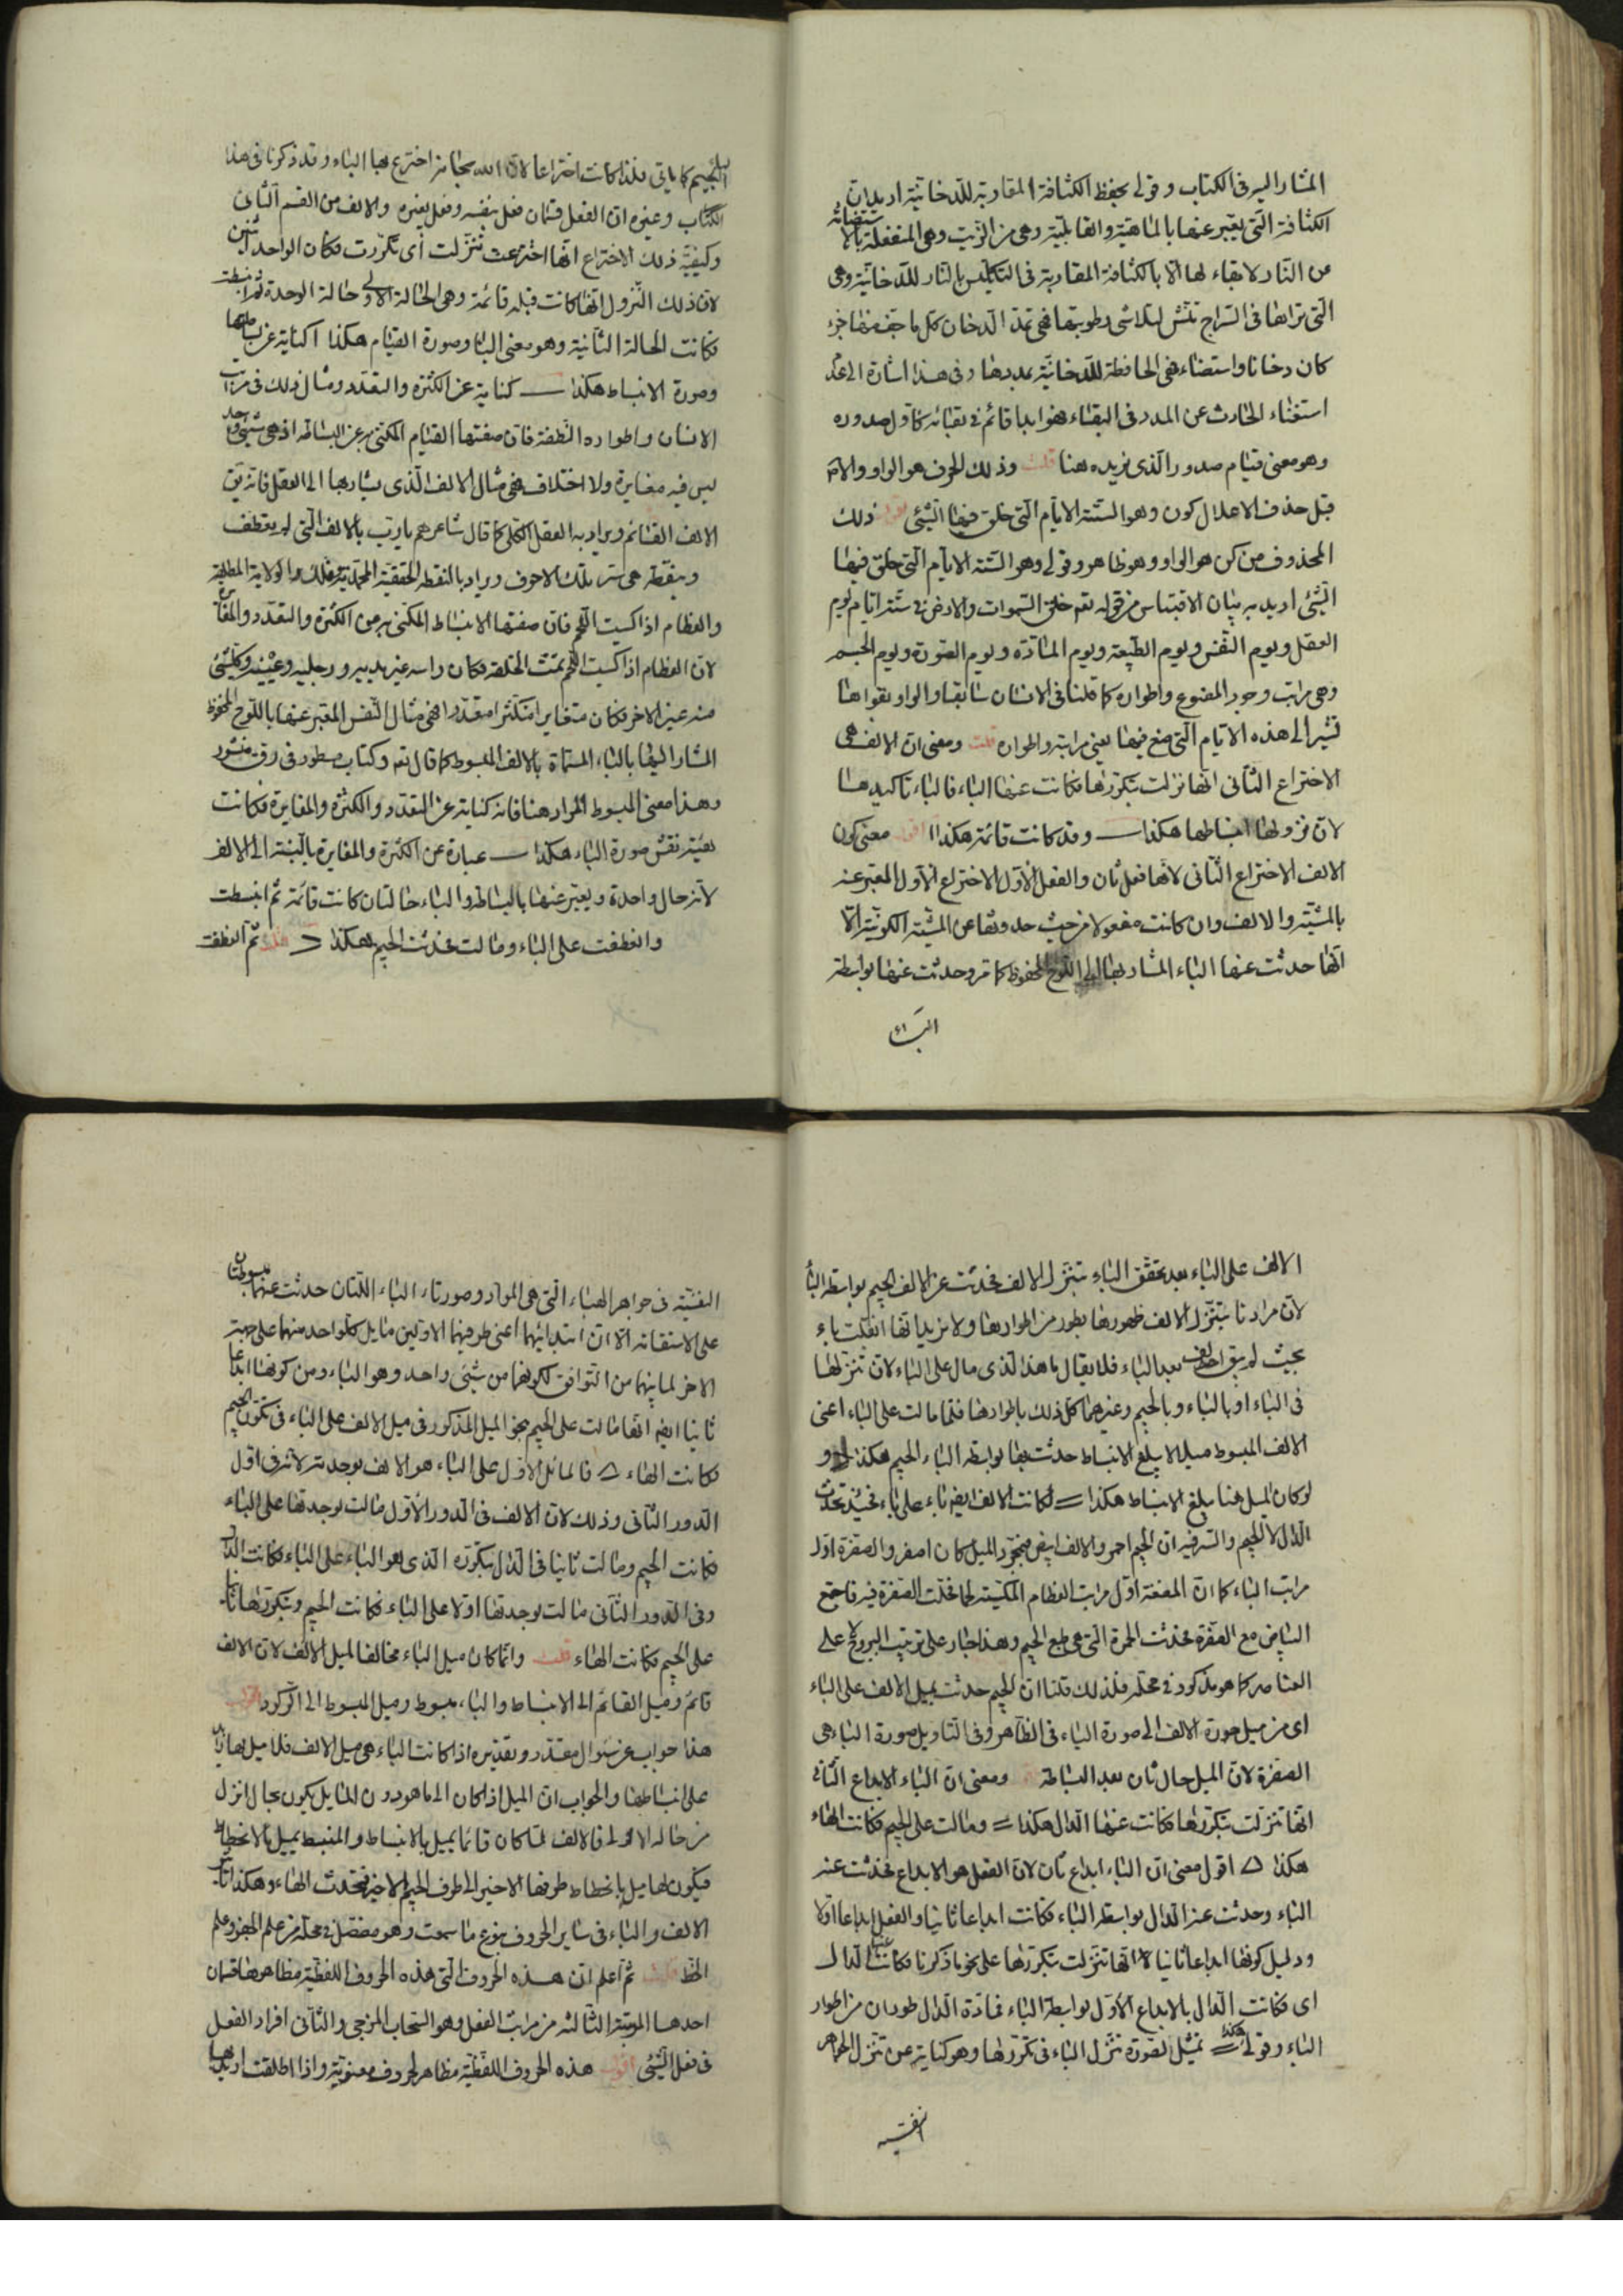 المشار اليه فى الكتاب وقولى بحفظ الكثافة المقاربة للدخانية اريد ان
الكثافة التى يعبر عنها بالماهية والقابلية وهى من الزيت وهى المنفعلة بالاستضائة
عن النار لا بقاء لها الا بالكثافة المقاربة فى التكليس بالنار للدخانية وهى
التى تراها فى السراج تنش لتلاشى رطوبتها فهى تمد الدخان كل ما جف منها جزء
كان دخانا واستضاء فهى الحافظة للدخانية بمددها وفى هذا اشارة الى عدم
استغناء الحادث عن المدد فى البقاء فهو ابدا قائم فى بقائه كاول صدوره
وهو معنى قيام صدور الذى نريده هنا قلت وذلك الحرف هو الواو والامر
قبل حذف الاعلال كون وهو الستة الايام التى خلق فيها الشئ اقول ذلك
المحذوف من كن هو الواو وهو ظاهر وقولى وهو الستة الايام التى خلق فيها
الشئ اريد به بيان الاقتباس من قوله تعم خلق السموات والارض فى ستة ايام يوم
العقل ويوم النفس ويوم الطبيعة ويوم المادة ويوم الصورة ويوم الجسم
وهى مراتب وجود المصنوع واطواره كما قلنا فى الانسان سابقا والواو بقواها
تشير الى هذه الايام التى صنع فيها يعنى مراتبه واطواره قلت ومعنى ان الالف هى
الاختراع الثانى انها نزلت بتكررها فكانت عنها الباء فالباء تاكيدها
لان نزولها انبساطها هكذا ـــ وقد كانت قائمة هكذا ا اقول معنى كون
الالف الاختراع الثانى لانها فعل ثان والفعل الاول الاختراع الاول المعبر عنه
بالمشية والالف وان كانت مفعولا من حيث حدوثها عن المشية الكونية الا
انها حدثت عنها الباء المشار بها الى اللوح المحفوظ كما مر وحدثت عنها بواسطة
الباء
الباء الجيم كما ياتى فلذا كانت اختراعا لان الله سبحانه اخترع بها الباء وقد ذكرنا فى هذا
الكتاب وغيره ان الفعل قسمان فعل بنفسه وفعل بغيره والالف من القسم الثانى
وكيفية ذلك الاختراع انها اخترعت تنزلت اى تكررت فكان الواحد اثنين
لان ذلك النزول انها كانت قبله قائمة وهى الحالة الاولى وحالة الوحدة ثم انبسطت
فكانت الحالة الثانية وهو معنى الباء وصورة القيام هكذا ا كناية عن بساطتها
وصورة الانبساط هكذا ـــ كناية عن الكثرة والتعدد ومثال ذلك فى مراتب
الانسان واطواره النطفة فان صفتها القيام المكنى به عن البساطة اذ هى شئ واحد
ليس فيه مغايرة ولا اختلاف فهى مثال الالف الذى يشار بها الى العقل فانه يق
الالف القائم ويراد به العقل الكلى كما قال شاعرهم يا رب بالالف التى لم يعطف
وبنقطة هى سر تلك الاحرف ويراد بالنقطة الحقيقة المحمدية وفلك الولاية المطلقة
والعظام اذا كسيت اللحم فان صفتها الانبساط المكنى به عن الكثرة والتعدد والمغايرة
لان العظام اذا كسيت اللحم تمت الخلقة فكان راسه غير يديه ورجليه وعينيه وكل شئ
منه غير الاخر فكان متغايرا متكثرا متعددا فهى مثال النفس المعبر عنها باللوح المحفوظ
المشار اليها بالباء المسماة بالالف المبسوط كما قال تعم وكتاب مسطور فى رق منشور
وهذا معنى المبسوط المراد هنا فانه كناية عن التعدد والكثرة والمغايرة فكانت
هيئة نقش صورة الباء هكذا ـــ عبارة عن الكثرة والمغايرة بالنسبة الى الالف
لانه حال واحدة ويعبر عنها بالبساطة والباء حالتان كانت قائمة ثم انبسطت
وانعطفت على الباء ومالت فحدثت الجيم هكذا قلت ثم انعطفت
الالف على الباء بعد تحقق الباء بتنزل الالف فحدثت عن الالف الجيم بواسطة الباء
لان مرادنا بتنزل الالف ظهورها بطور من اطوارها ولا نريد انها انقلبت باء
بحيث لم يبق الف بعد الباء فلا يقال ما هذا الذى مال على الباء لان تنزلها
فى الباء او بالباء وبالجيم وغيرهما كل ذلك باطوارها فلما مالت على الباء اعنى
الالف المبسوط ميلا لا يبلغ الانبساط حدثت بها بواسطة الباء الجيم هكذا ولو
لو كان الميل هنا يبلغ الانبساط هكذا = لكانت الالف ايضا باء على باء فحينئذ تحدث
الدال لا الجيم والسر فيه ان الجيم احمر والالف ابيض فبمجرد الميل كان اصفر والصفرة اول
مراتب الباء كما ان المضغة اول مراتب العظام المكتسية لحما فحلت الصفرة فيه فاجتمع
البياض مع الصفرة فحدثت الحمرة التى هى طبع الجيم وهذا جار على ترتيب البروج لا على
العناصر كما هو مذكور فى محله فلذلك قلنا ان الجيم حدثت بميل الالف على الباء
اى من ميل صورة الالف الى صورة الباء فى الظاهر وفى التاويل صورة الباء هى
الصفرة لان الميل حال ثان بعد البساطة ومعنى ان الباء الابداع الثانى
انها تنزلت بتكررها فكانت عنها الدال هكذا = ومالت على الجيم فكانت الهاء
هكذا ه اقول معنى ان الباء ابداع ثان لان الفعل هو الابداع فحدثت عنه
الباء وحدثت عنه الدال بواسطة الباء فكانت ابداعا ثانيا والفعل ابداعا اولا
ودليل كونها ابداعا ثانيا انها تنزلت بتكررها على نحو ما ذكرنا فكانت عنها الدال
اى فكانت الدال بالابداع الاول بواسطة الباء فمادة الدال طوران من اطوار
الباء وقولى هكذا = تمثيل لصورة تنزل الباء فى تكررها وهو كناية عن تنزل الجواهر
النفسية
النفسية فى جواهر الهباء التى هى المواد وصورتاء الباء اللتان حدثت عنهما مبسوطتان
على الاستقامة الا ان ابتدائهما اعنى طرفيهما الاولين مايل كل واحد منهما على جهة
الاخر لما بينهما من التوافق لكونهما من شئ واحد وهو الباء ومن كونها ابداعا
ثانيا ايضا انها مالت على الجيم بنحو الميل المذكور فى ميل الالف على الباء فى تكون الجيم
فكانت الهاء ه فالمائل الاول على الباء هو الالف بوحدته لانه فى اول
الدور الثانى وذلك لان الالف فى الدور الاول مالت بوحدتها على الباء
فكانت الجيم ومالت ثانيا فى الدال بتكرره الذى هو الباء على الباء فكانت الدال
وفى الدور الثانى مالت بوحدتها اولا على الباء فكانت الجيم وبتكررها ثانيا
على الجيم فكانت الهاء قلت وانما كان ميل الباء مخالفا لميل الالف لان الالف
قائم وميل القائم الى الانبساط والباء مبسوط وميل المبسوط الى الركود اقول
هذا جواب عن سؤال مقدر وتقديره اذا كانت الباء هى ميل الالف فلا ميل لها
على انبساطها والجواب ان الميل اذا كان الى ما هو دون المايل يكون بحال انزل
من حاله الاولى فالالف لما كان قائما يميل بالانبساط والمنبسط يميل بالانحطاط
فيكون لها ميل بانحطاط طرفها الاخير الى طرف الجيم الاخير فتحدث الهاء وهكذا
الالف والباء فى ساير الحروف بنوع ما سمعت وهو مفصل فى محله من علم الجفر وعلم
الخط قلت ثم اعلم ان هذه الحروف التى هذه الحروف اللفظية مظاهرها قسمان
احدهما المرتبة الثالثة من مراتب الفعل وهو السحاب المزجى والثانى افراد الفعل
فى فعل الشئ اقول هذه الحروف اللفظية مظاهر لحروف معنوية واذا اطلقت اريد بها